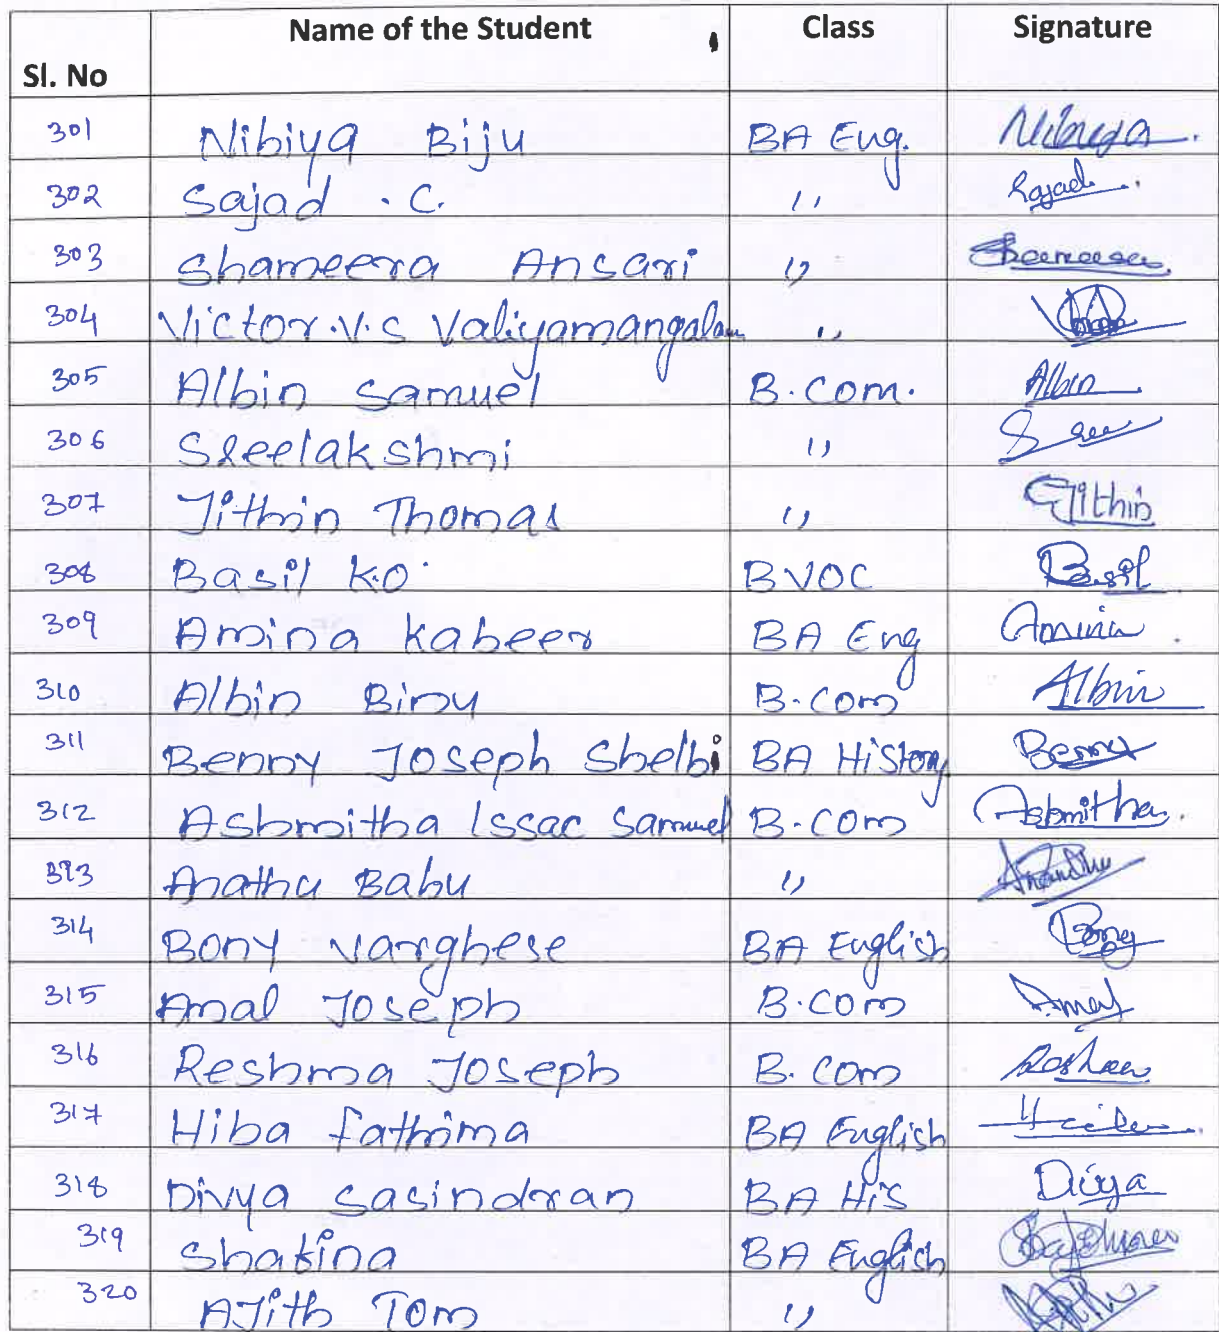 Sl. No Name of the Student Class Signature
301 Nibiya Biju BA Eng. Nibiya
302 Sajad . C. ,, Sajad
303 Shameera Ansari ,, Shameera
304 Victor.V.S Valiyamangalam ,,
305 Albin Samuel B.Com. Albin
306 Sreelakshmi ,, Sree
307 Jithin Thomas ,, Jithin
308 Basil K.O BVOC Basil
309 Amina Kabeer BA Eng Amina
310 Albin Binu B.Com Albin
311 Benny Joseph Shelbi BA History Benny
312 Ashmitha Issac Samuel B.Com Ashmitha
313 Anathu Babu ,, Anandhu
314 Bony Varghese BA English Bony
315 Amal Joseph B.Com Amal
316 Reshma Joseph B.Com
317 Hiba Fathima BA English
318 Divya Sasindran BA His Divya
319 Shafina BA English
320 AJith Tom ,,